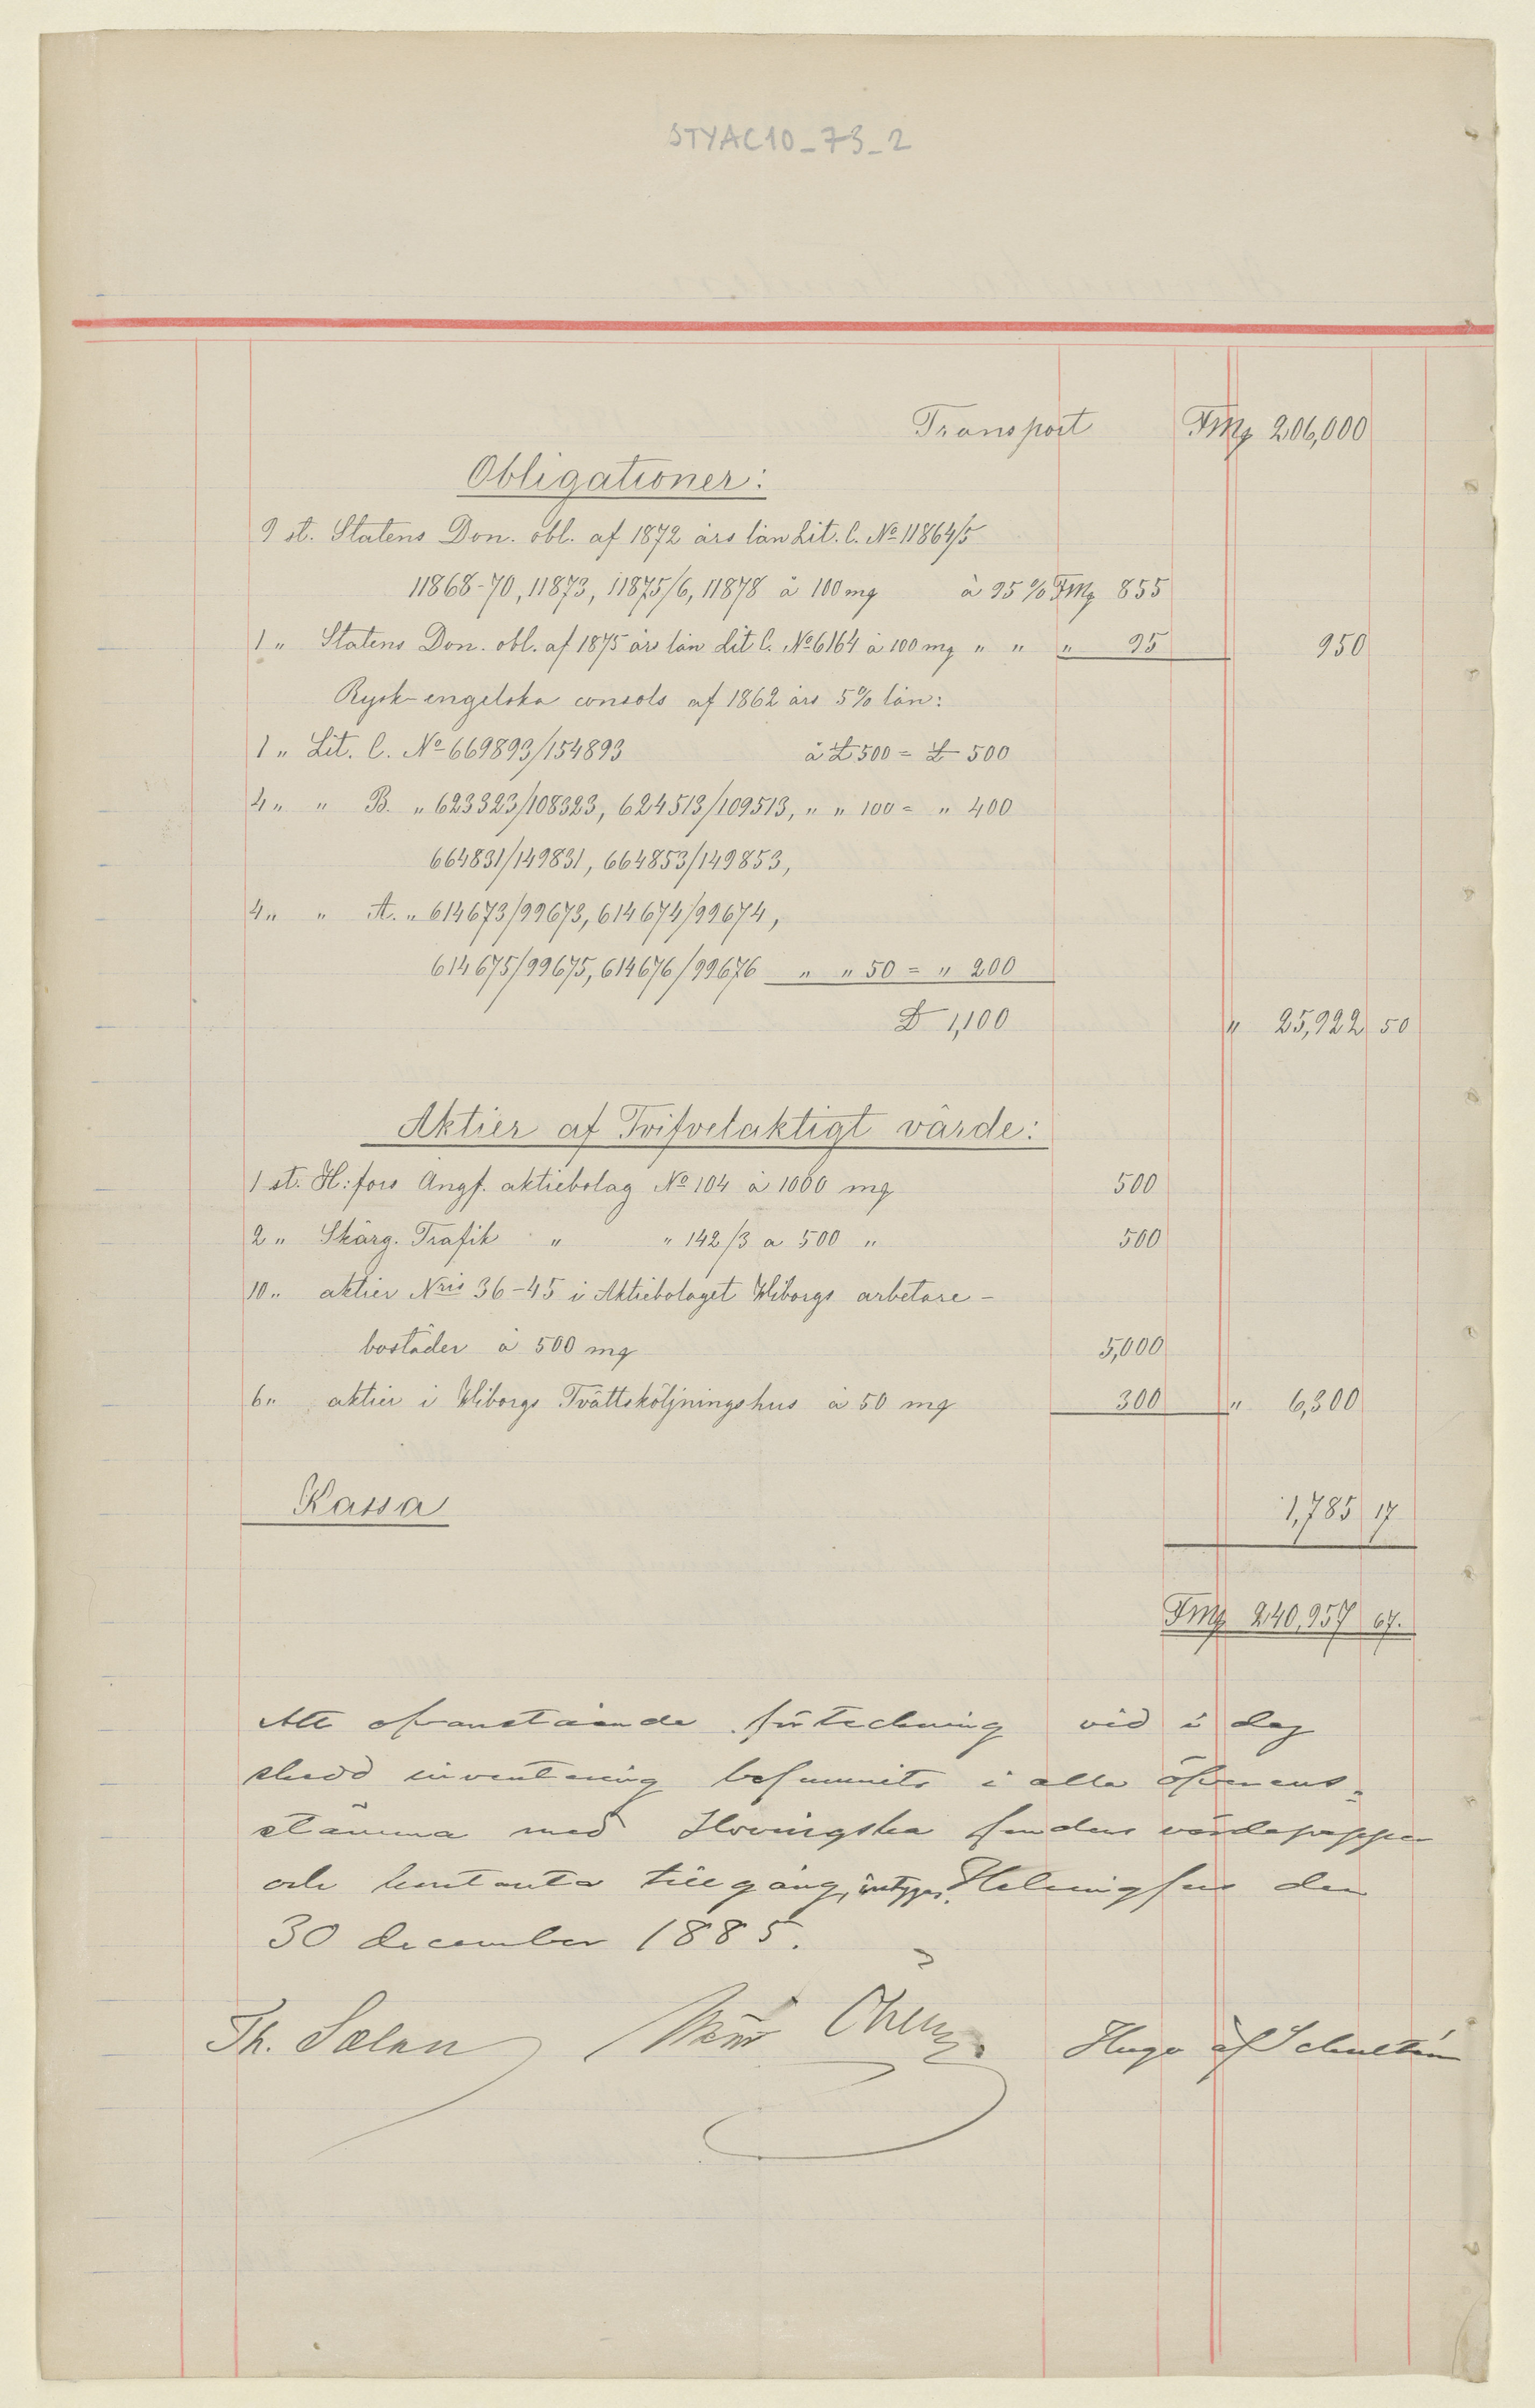 STYAC10_73_2
Transport Fmg 206,000
Obligationer:
9 st. Statens Don. obl. af 1872 års lån Lit. C. No 11864/5
11868-70, 11873, 11875/6, 11878 à 100 mg à 95 % Fmg 855
1 " Statens Don. obl. af 1875 års lån Lit C. No 6164 à 100 mg " " " 95 950
Rysk-engelska consols af 1862 års 5% lån:
1 " Lit. C. No 669893/154893 à £ 500 = £ 500
4 " " B. " 623323/108323, 624513/109513, " " 100 = " 400
664831/149831, 664853/149853,
4 " " A. " 614673/99673, 614674/99674,
614675/99675, 614676/99676 " " 50 = " 200
£ 1,100 " 25,922 50
Aktier af Tvifvelaktigt värde:
1 st. H:fors Ångf. aktiebolag No 104 à 1000 mg 500
2 " Skärg. Trafik " " 142/3 a 500 " 500
10 " aktier Nris 36-45 i Aktiebolaget Wiborgs arbetare-
bostäder à 500 mg 5,000
6 " aktier i Wiborgs Tvättsköljningshus à 50 mg 300 " 6,300
Kassa 1,785 17
Fmg 240,957 67.
Att ofvanstående förteckning vid i dag
skedd inventering befunnits i allo öfverens-
stämma med Hvingska fondens värdepapper
och kontanta tillgång, intyga. Helsingfors den
30 december 1885.
Th. Sælan Hugo af Schultén